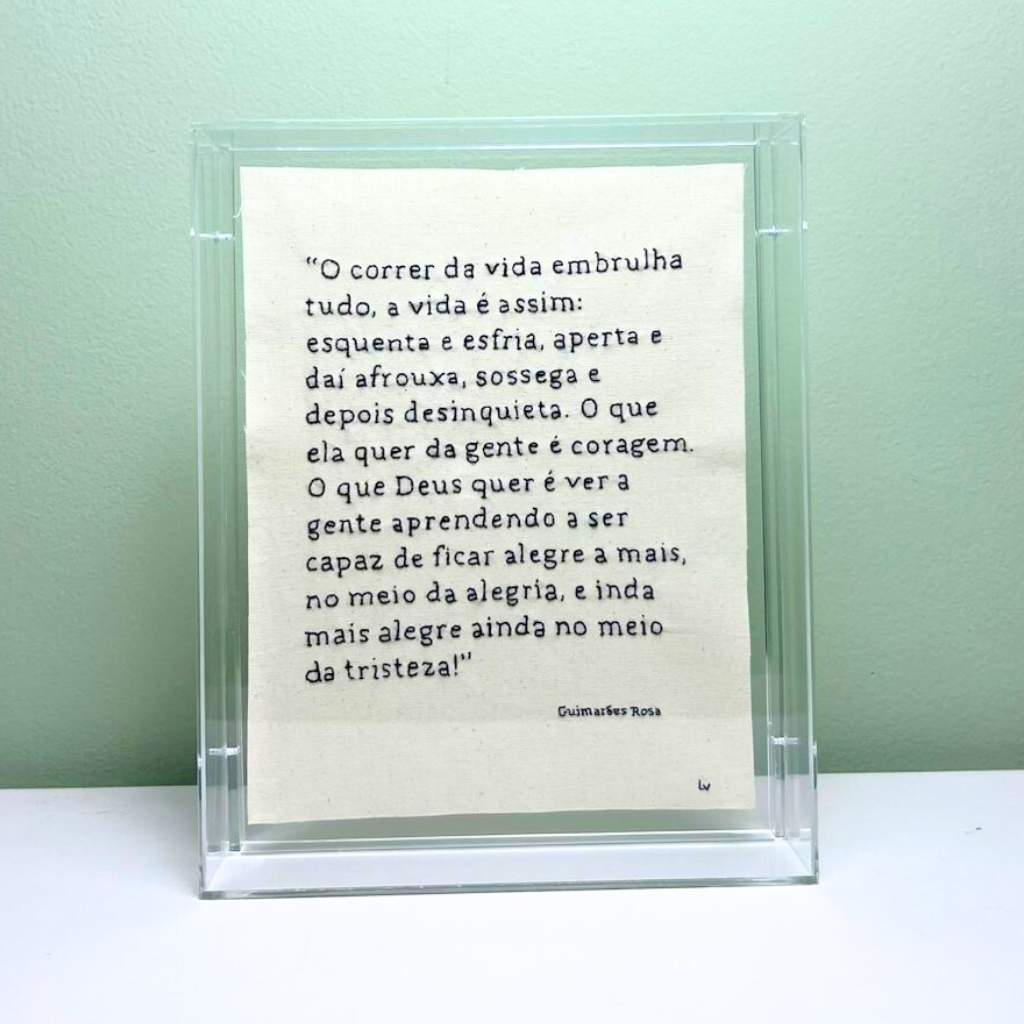 “O correr da vida embrulha
tudo, a vida é assim:
esquenta e esfria, aperta e
daí afrouxa, sossega e
depois desinquieta. O que
ela quer da gente é coragem.
O que Deus quer é ver a
gente aprendendo a ser
capaz de ficar alegre a mais,
no meio da alegria, e inda
mais alegre ainda no meio
da tristeza!”
Guimarães Rosa
Lv